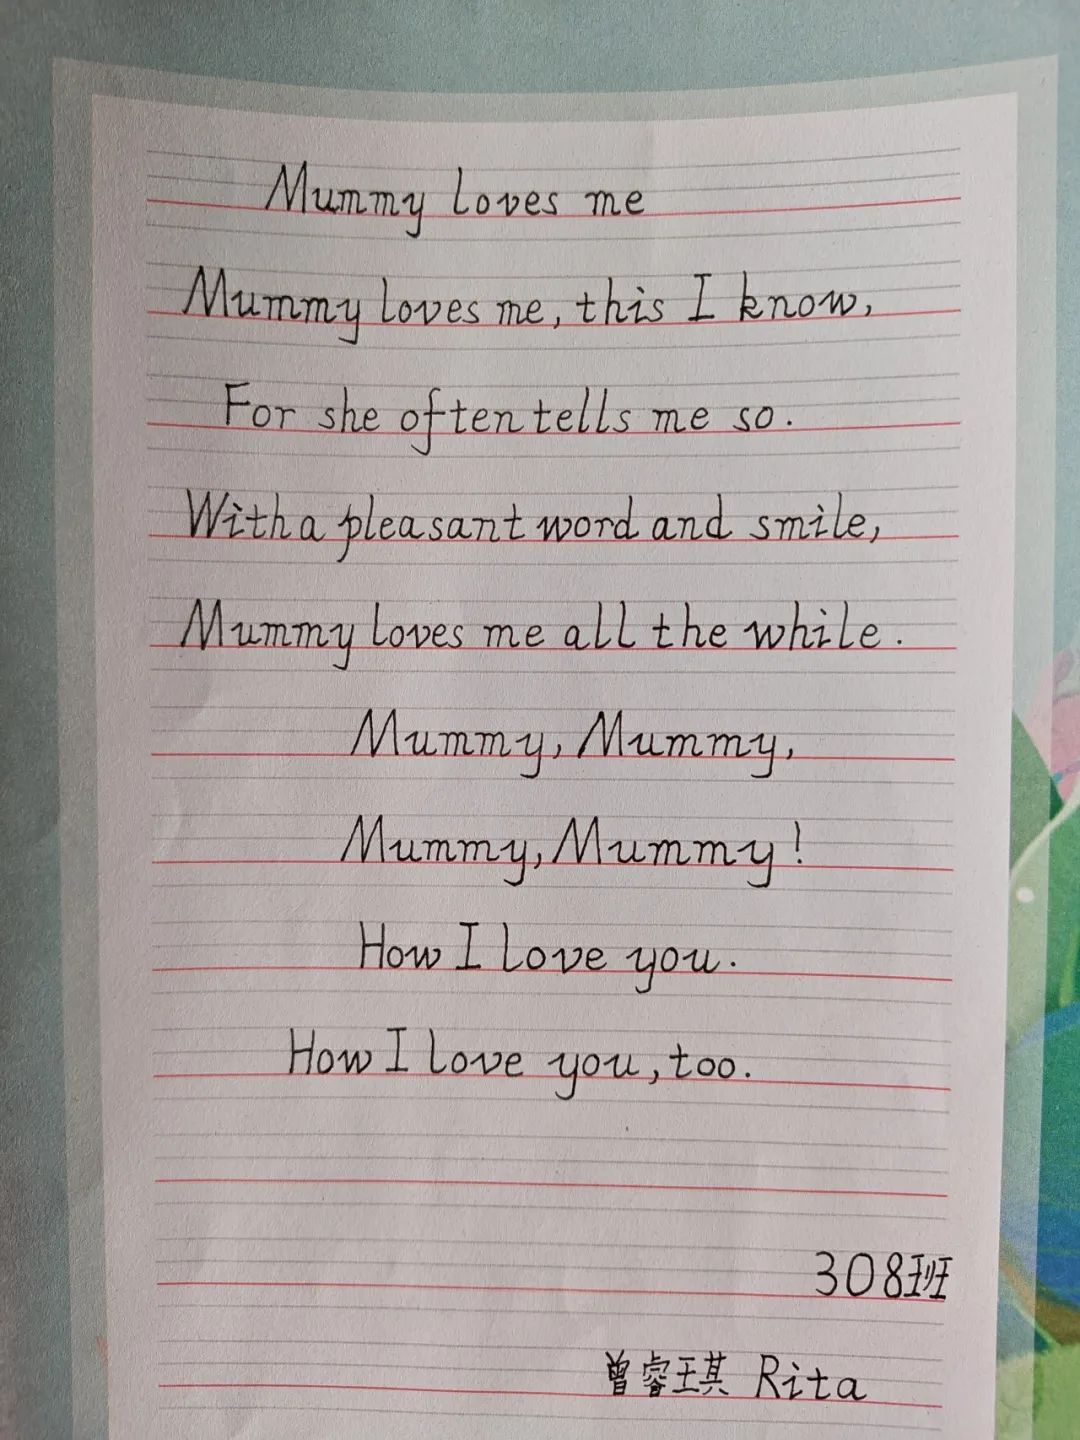 Mummy loves me
Mummy loves me, this I know,
For she often tells me so.
With a pleasant word and smile,
Mummy loves me all the while.
Mummy, Mummy,
Mummy, Mummy!
How I love you.
How I love you, too.
308班
曾睿琪 Rita